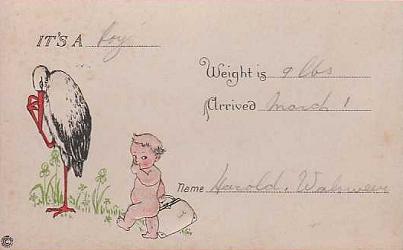 IT'S A boy
Weight is 9 lbs
Arrived March 1
Name Harold.